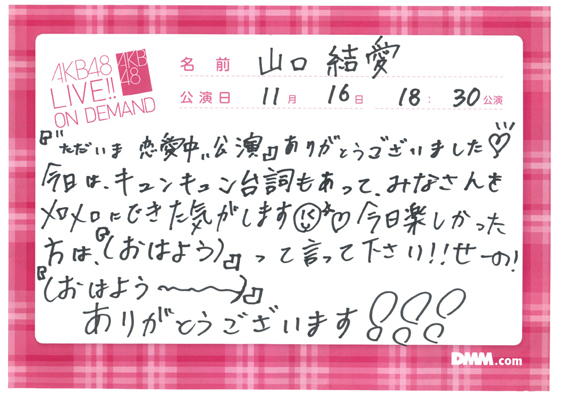 AKB48
LIVE!!
ON DEMAND
AKB
48
名前 山口 結愛
公演日 11月 16日 18:30公演
『"ただいま 恋愛中"公演』ありがとうございました♡
今日は、キュンキュン台詞もあって、みなさんを
メロメロにできた気がします♡今日楽しかった
方は、『(おはよう)』って言って下さい!!せーの!
『(おはよう〜〜〜)』
ありがとうございます!!!
DMM.com